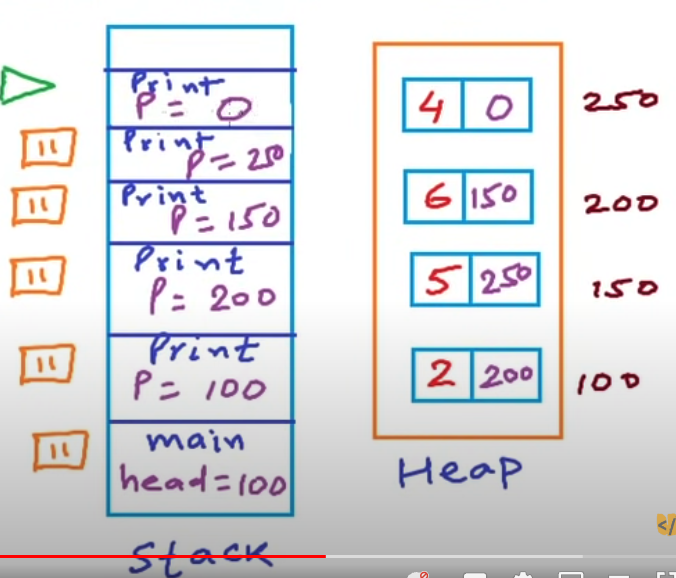 Print
P = 0
Print
P = 250
Print
P = 150
Print
P = 200
Print
P = 100
main
head = 100
Stack
4 0 250
6 150 200
5 250 150
2 200 100
Heap